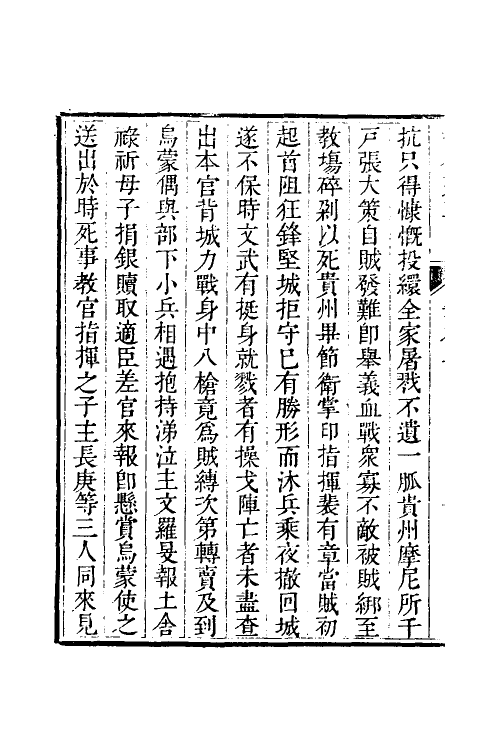 抗只得慷慨投繯全家屠戮不遺一脈貴州摩尼所千
戸張大策自賊發難卽舉義血戰衆寡不敵被賊綁至
教塲碎剮以死貴州畢節衛掌印指揮裴有章當賊初
起首阻狂鋒堅城拒守已有勝形而沐兵乘夜撤回城
遂不保時文武有挺身就戮者有操戈陣亡者未盡查
出本官背城力戰身中八槍竟爲賊縛次第轉賣及到
烏蒙偶與部下小兵相遇抱持涕泣主文羅旻報土舍
祿祈母子捐銀贖取適臣差官來報卽懸賞烏蒙使之
送出於時死事教官指揮之子王長庚等三人同來見